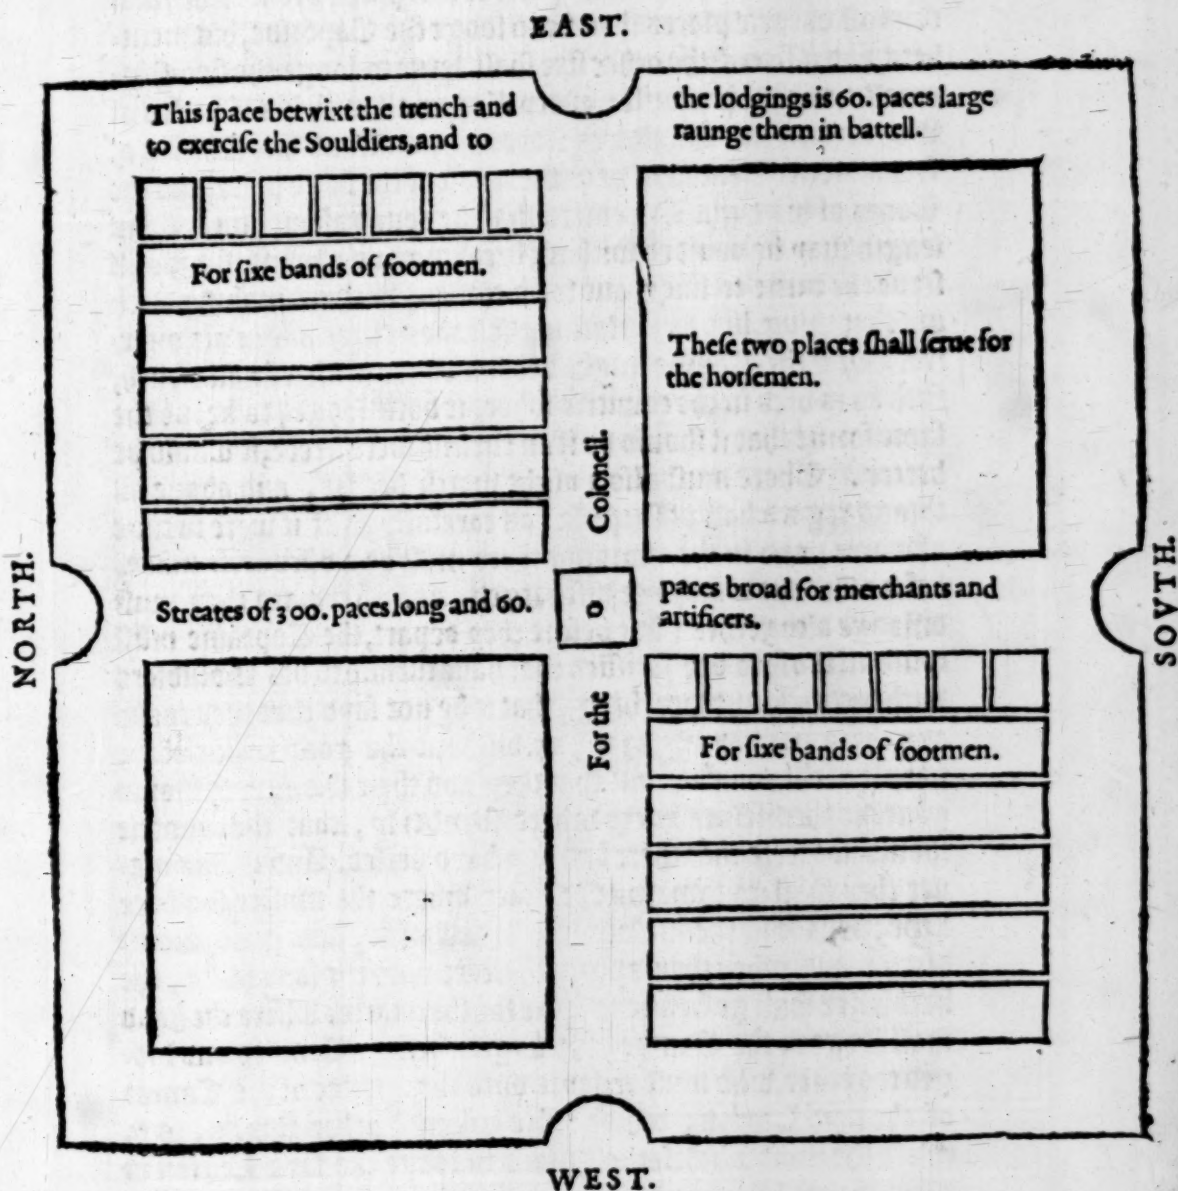 EAST.
This ſpace betwixt the trench and
to exerciſe the Souldiers, and to
the lodgings is 60. paces large
raunge them in battell.
For ſixe bands of footmen.
Theſe two places ſhall ſerue for
the horſemen.
Colonell.
NORTH.
SOVTH.
Streates of 300. paces long and 60.
o
paces broad for merchants and
artificers.
For the
For ſixe bands of footmen.
WEST.